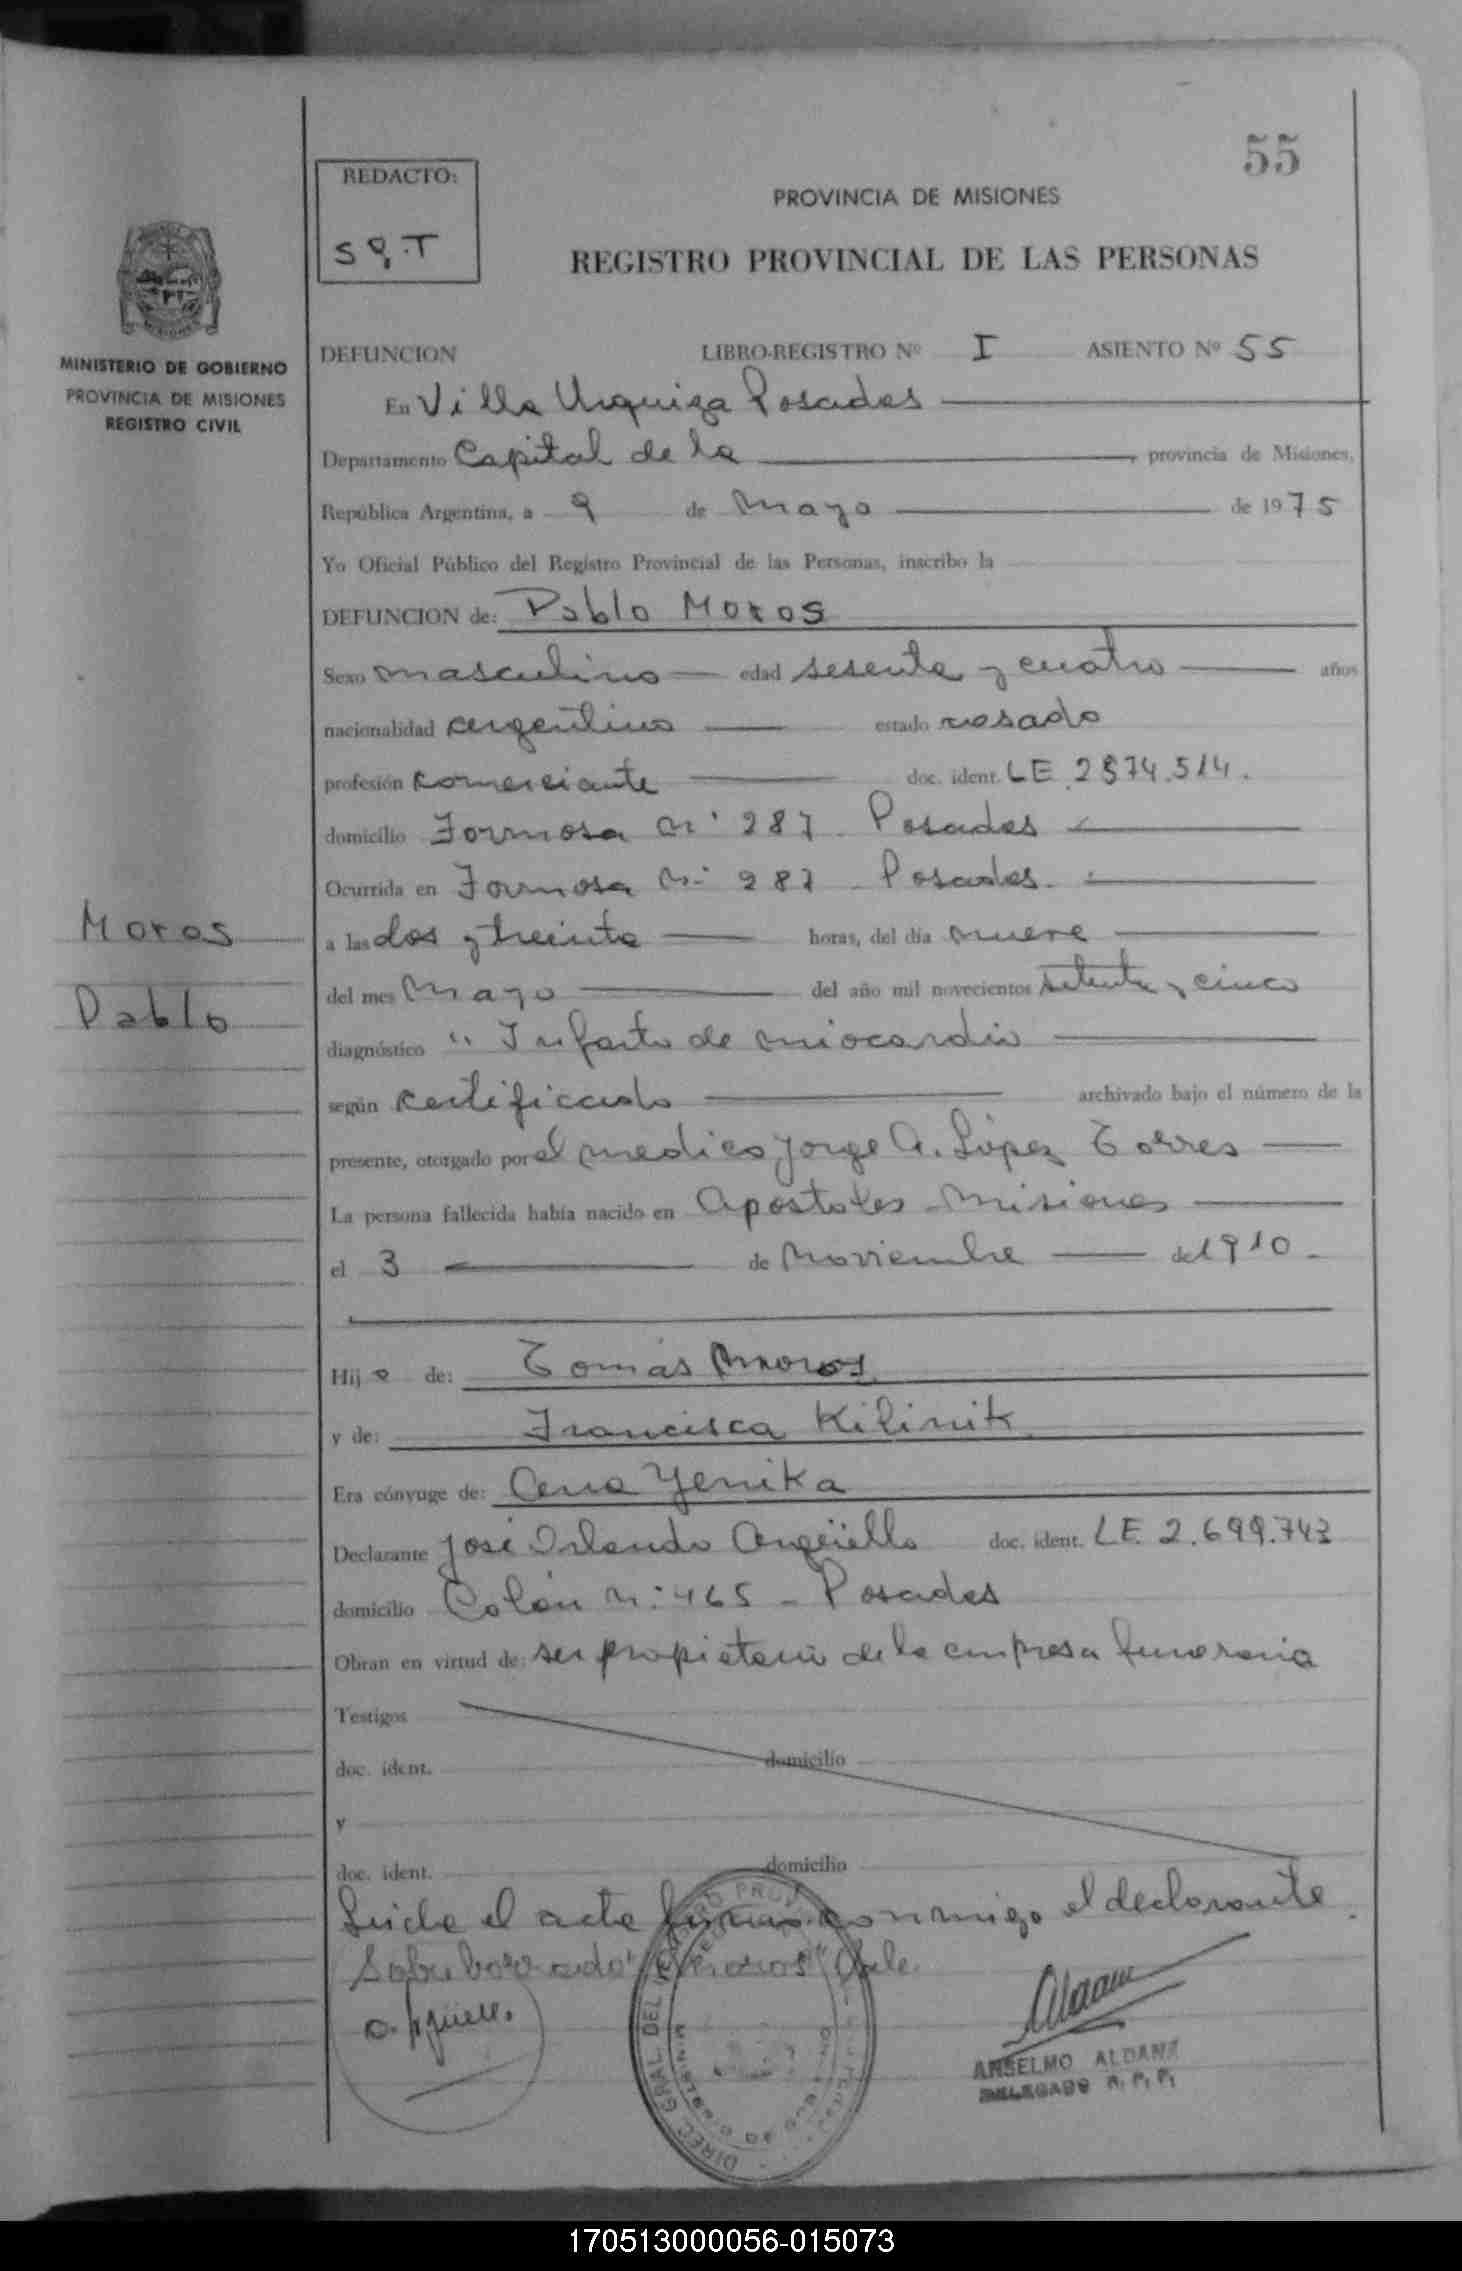 55
REDACTO:
PROVINCIA DE MISIONES
REGISTRO PROVINCIAL DE LAS PERSONAS
MINISTERIO DE GOBIERNO
PROVINCIA DE MISIONES
REGISTRO CIVIL
DEFUNCION LIBRO-REGISTRO Nº I ASIENTO Nº 55
En Villa Urquiza Posadas
Departamento Capital de la , provincia de Misiones,
República Argentina, a 9 de Mayo de 1975
Yo Oficial Público del Registro Provincial de las Personas, inscribo la
DEFUNCION de: Pablo Moros
Sexo masculino edad sesenta y cuatro años
nacionalidad argentino estado casado
profesión comerciante doc. ident. LE 2874.514.
domicilio Formosa Nº 287 Posadas
Ocurrida en Formosa Nº 287 - Posadas.
Moros
a las dos y treinta horas, del día nueve
Pablo
del mes Mayo del año mil novecientos setenta y cinco
diagnóstico " Infarto de miocardio
según certificado archivado bajo el número de la
presente, otorgado por el medico Jorge A. López Torres
La persona fallecida había nacido en Apostoles - Misiones
el 3 de Noviembre de 1910 -
Hijo de: Tomás Moros
y de: Francisca Kilinik
Era cónyuge de: Ana Yenika
Declarante José Orlando Argüello doc. ident. LE 2.699.743
domicilio Colón Nº 465 - Posadas
Obran en virtud de: ser propietario de la empresa funeraria
Testigos
doc. ident. domicilio
y
doc. ident. domicilio
Leida el acta firma conmigo el declarante.
Sobre borrado "Moros" Vale.
ANSELMO ALDANA
DELEGADO R. P. P.
170513000056-015073